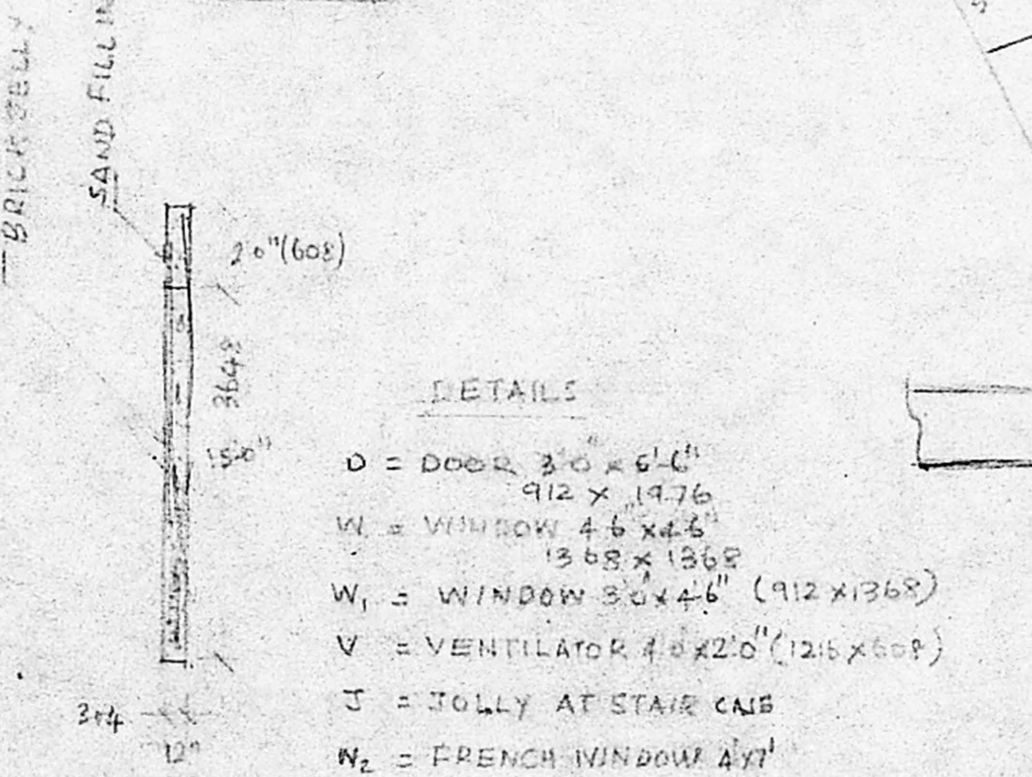 BRICK JELLY
SAND FILLIN
2'0"(608)
3648
15'0"
304
12"
DETAILS
D = DOOR 3'0" x 6'-6"
912 x 1976
W = WINDOW 4'6" x 4'6"
1368 x 1368
W₁ = WINDOW 3'0" x 4'6" (912 x 1368)
V = VENTILATOR 4'0" x 2'0" (1216 x 608)
J = JOLLY AT STAIR CASE
W₂ = FRENCH WINDOW 4'x7'